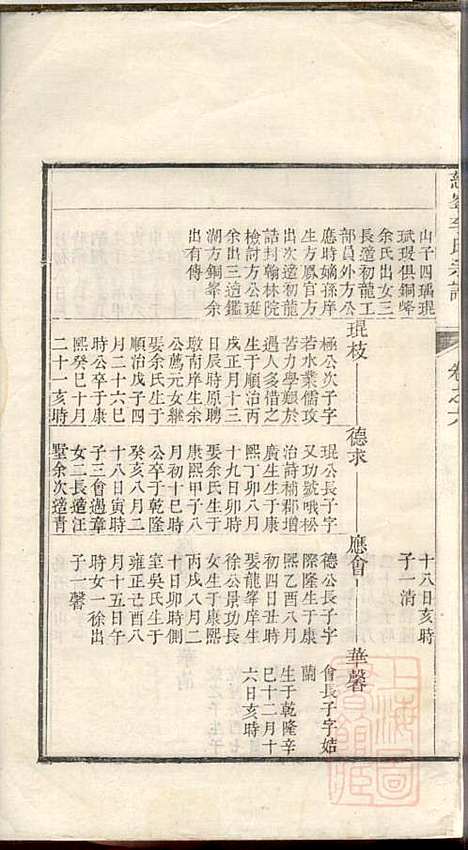 氏宗譜
卷之六
山子四瑀琨
珷瑕俱銅峰
余氏出女三
長適初龍工
部員外方公
應時嫡孫庠
生方鳳官方
出次適初龍
誥封翰林院
檢討方公珽
余出三適鑑
湖方銅峯余
出有傳
琨枝
極公次子字
若水業儒攻
苦力學艱於
過人多惜之
生于順治丙
戌正月十三
日辰時原聘
敦南庠生余
公薦元女繼
娶余氏生于
順治戊子四
月二十六巳
時公卒于康
熙癸巳十月
二十一亥時
德求
琨公長子字
又功號哦松
治詩補郡增
廣生生于康
熙丁卯八月
十九日卯時
娶余氏生于
康熙甲子八
月初十巳時
公卒于乾隆
癸亥八月二
十八日寅時
子三會過章
女二長適汪
墅余次適青
十八日亥時
子一清
應會
德公長子字
際隆生于康
熙乙酉八月
初四日丑時
娶龍峯庠生
徐公景功長
女生于康熙
丙戌八月二
十日卯時側
室吳氏生于
雍正己酉八
月十五日午
時女一徐出
子一馨
華馨
會長子字姞
蘭
生于乾隆辛
巳十二月十
六日亥時